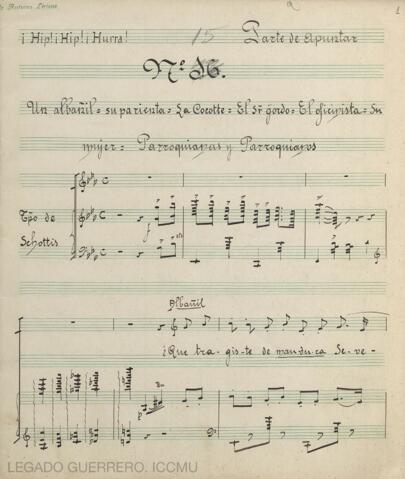 ¡Hip! ¡Hip! ¡Hurra! 15 Parte de Apuntar
1
Nº 16.
Un albañil = su parienta = La Cocotte = El Sr gordo = El oficinista = Su
mujer = Parroquianas y Parroquianos
Tpo de
Schottis
f
Albañil
¡Que tra - gis - te de man du ca Se - ve -
p
LEGADO GUERRERO. ICCMU